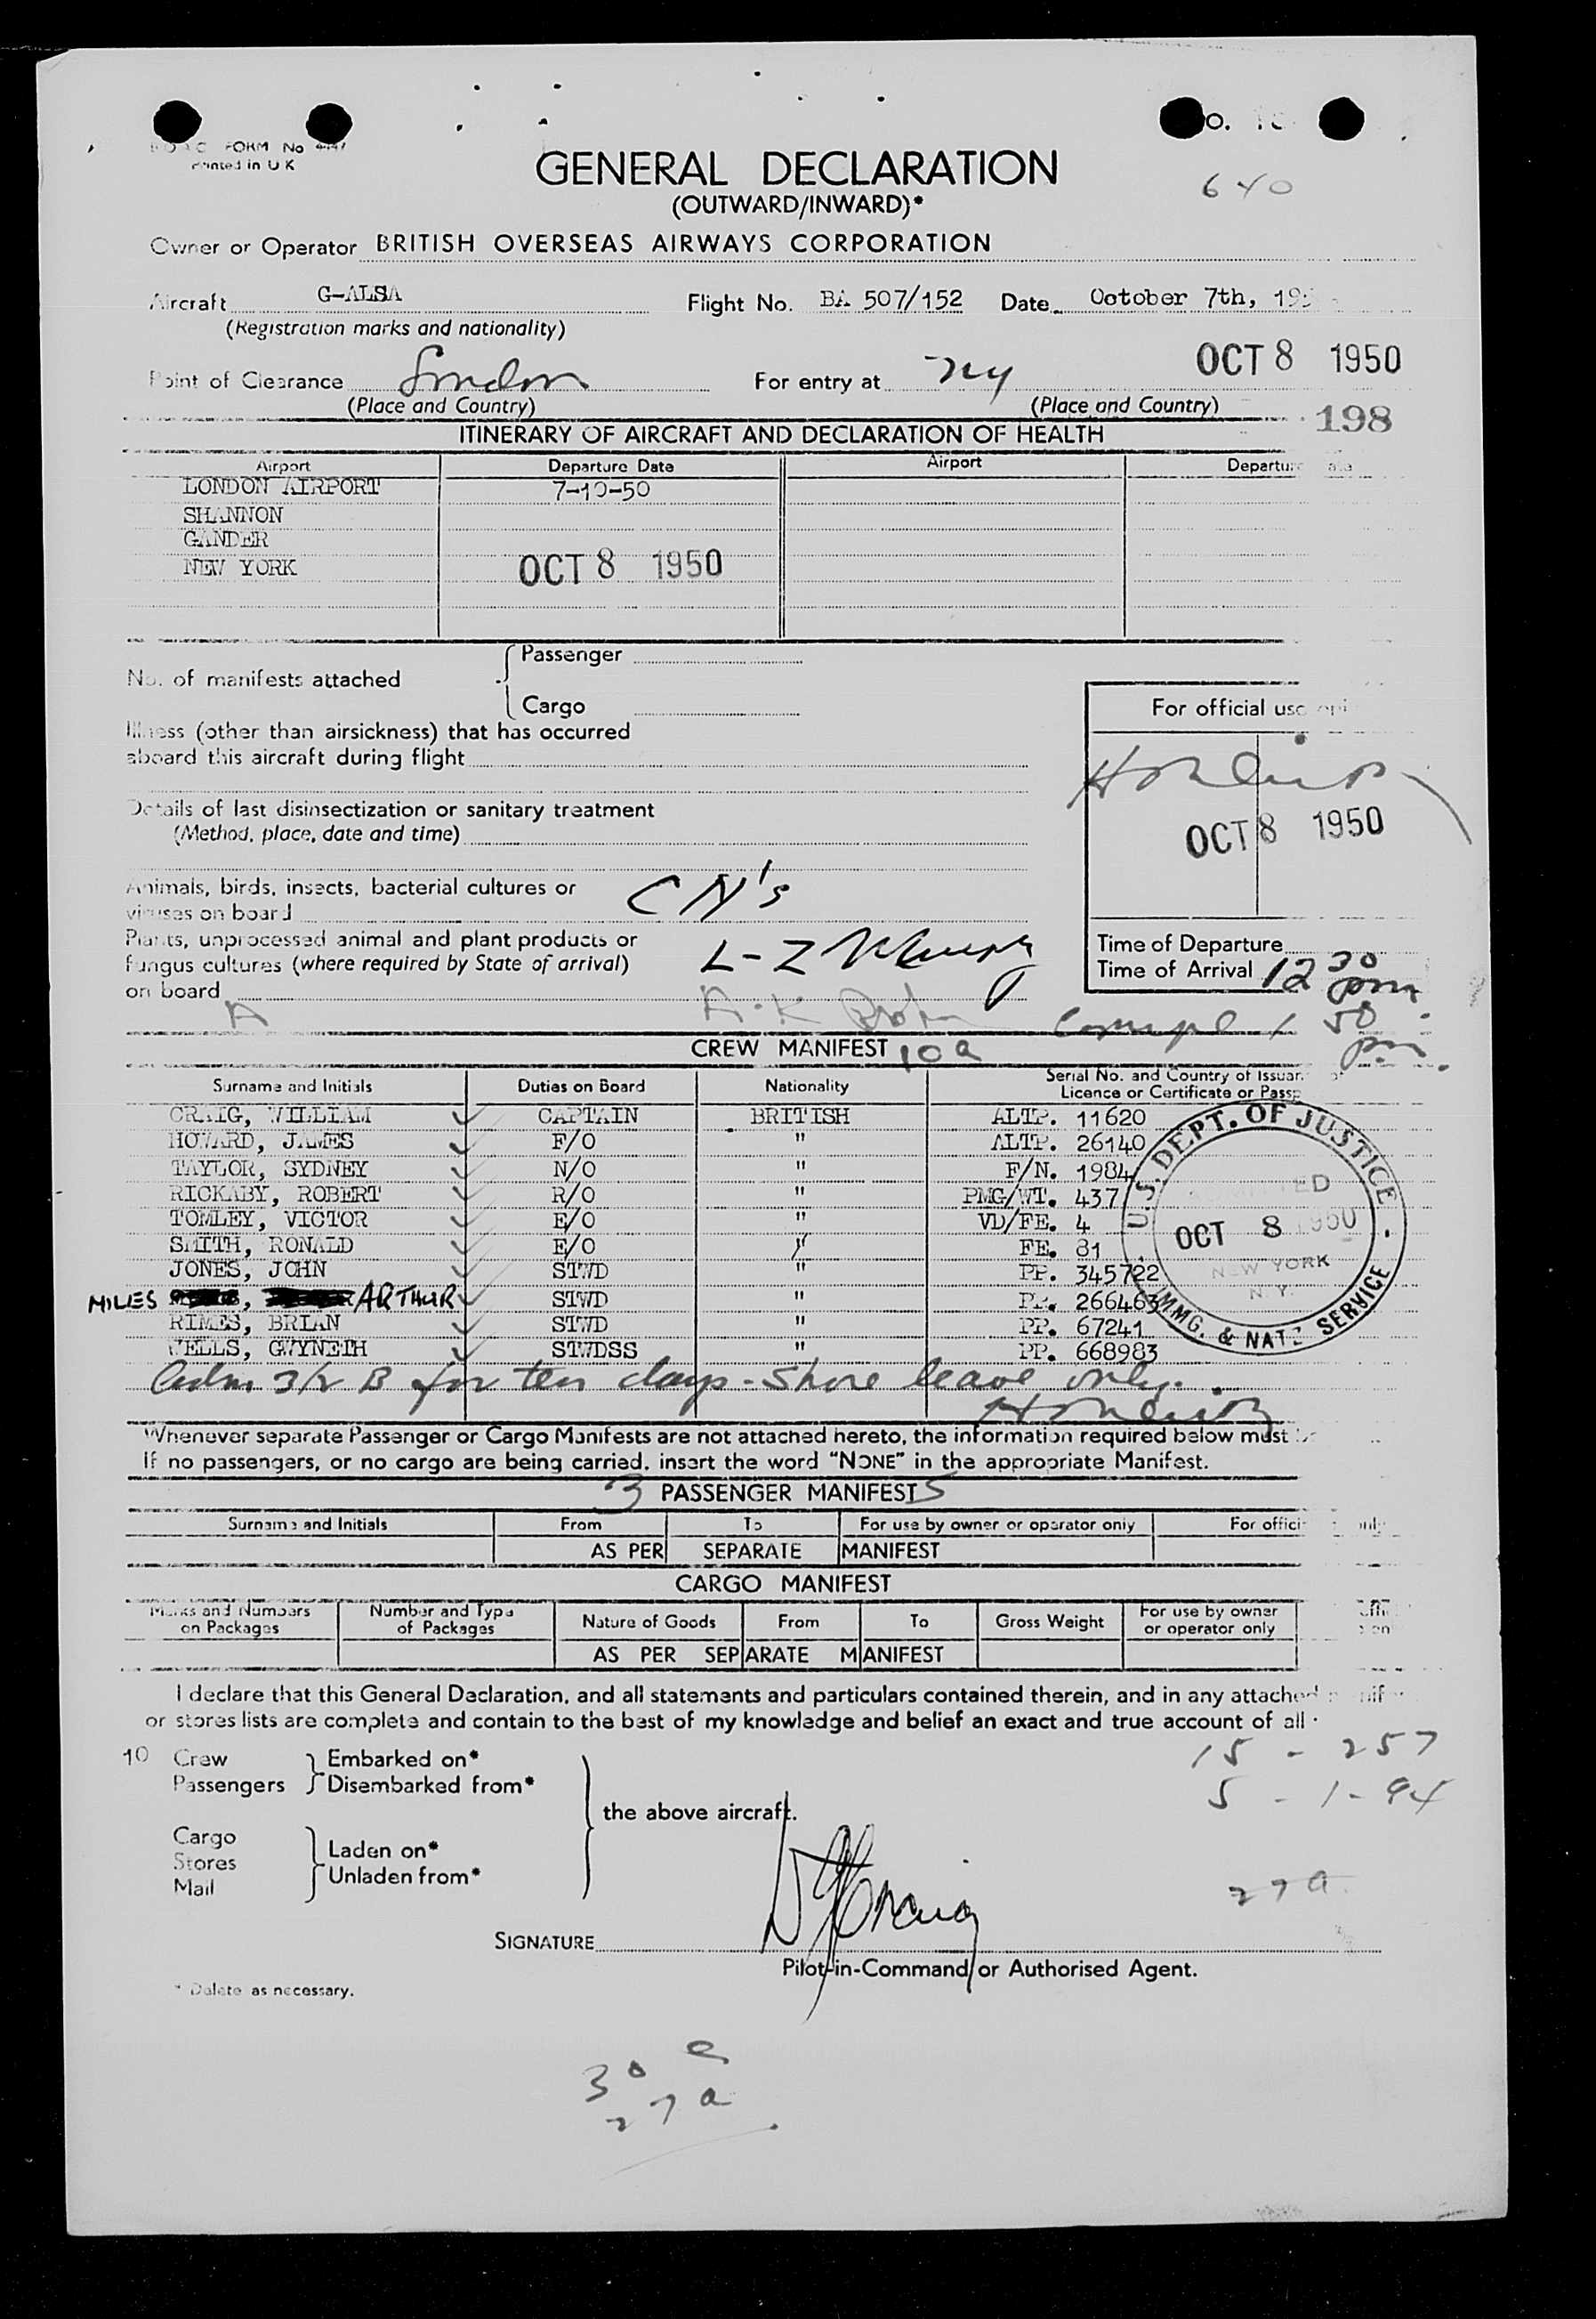 FORM No
Printed in U K
GENERAL DECLARATION
(OUTWARD/INWARD)*
640
Owner or Operator BRITISH OVERSEAS AIRWAYS CORPORATION
Aircraft G-ALSA Flight No. BA 507/152 Date October 7th,
(Registration marks and nationality)
OCT 8 1950
Point of Clearance London For entry at NY
(Place and Country) (Place and Country)
198
ITINERARY OF AIRCRAFT AND DECLARATION OF HEALTH
Airport Departure Date Airport Departure
LONDON AIRPORT 7-10-50
SHANNON
GANDER
NEW YORK OCT 8 1950
No. of manifests attached Passenger
Cargo
For official use
Illness (other than airsickness) that has occurred
aboard this aircraft during flight
Details of last disinsectization or sanitary treatment
(Method, place, date and time)
OCT 8 1950
Animals, birds, insects, bacterial cultures or
viruses on board
C N's
Plants, unprocessed animal and plant products or
fungus cultures (where required by State of arrival)
on board
L-Z
Time of Departure
Time of Arrival 12 30 pm
A A-K 1 50 pm.
CREW MANIFEST 10 a
Surname and Initials Duties on Board Nationality Serial No. and Country of Issuance of
Licence or Certificate or Passp
CRAIG, WILLIAM CAPTAIN BRITISH ALTP. 11620
HOWARD, JAMES F/O " ALTP. 26140
TAYLOR, SYDNEY N/O " F/N. 1984
RICKABY, ROBERT R/O " PMG/WT. 437
TOMLEY, VICTOR E/O " VD/FE. 4
SMITH, RONALD E/O " FE. 81
JONES, JOHN STWD " PP. 345722
MILES , ARTHUR STWD " PP. 266463
RIMES, BRIAN STWD " PP. 67241
WELLS, GWYNETH STWDSS " PP. 668983
U.S. DEPT. OF JUSTICE
ADMITTED
OCT 8 1950
NEW YORK
N.Y.
IMMG. & NATZ SERVICE
Adm 3/2 B for ten days - Shore leave only.
Whenever separate Passenger or Cargo Manifests are not attached hereto, the information required below must be
If no passengers, or no cargo are being carried, insert the word "NONE" in the appropriate Manifest.
3 PASSENGER MANIFESTS
Surname and Initials From To For use by owner or operator only For official only
AS PER SEPARATE MANIFEST
CARGO MANIFEST
Marks and Numbers on Packages Number and Type of Packages Nature of Goods From To Gross Weight For use by owner or operator only
AS PER SEPARATE MANIFEST
I declare that this General Declaration, and all statements and particulars contained therein, and in any attached
or stores lists are complete and contain to the best of my knowledge and belief an exact and true account of all
15 - 257
10 Crew Embarked on*
Passengers Disembarked from*
5 - 1 - 94
the above aircraft.
Cargo
Stores
Mail
Laden on*
Unladen from*
27 a
SIGNATURE
Pilot-in-Command or Authorised Agent.
* Delete as necessary.
27 a